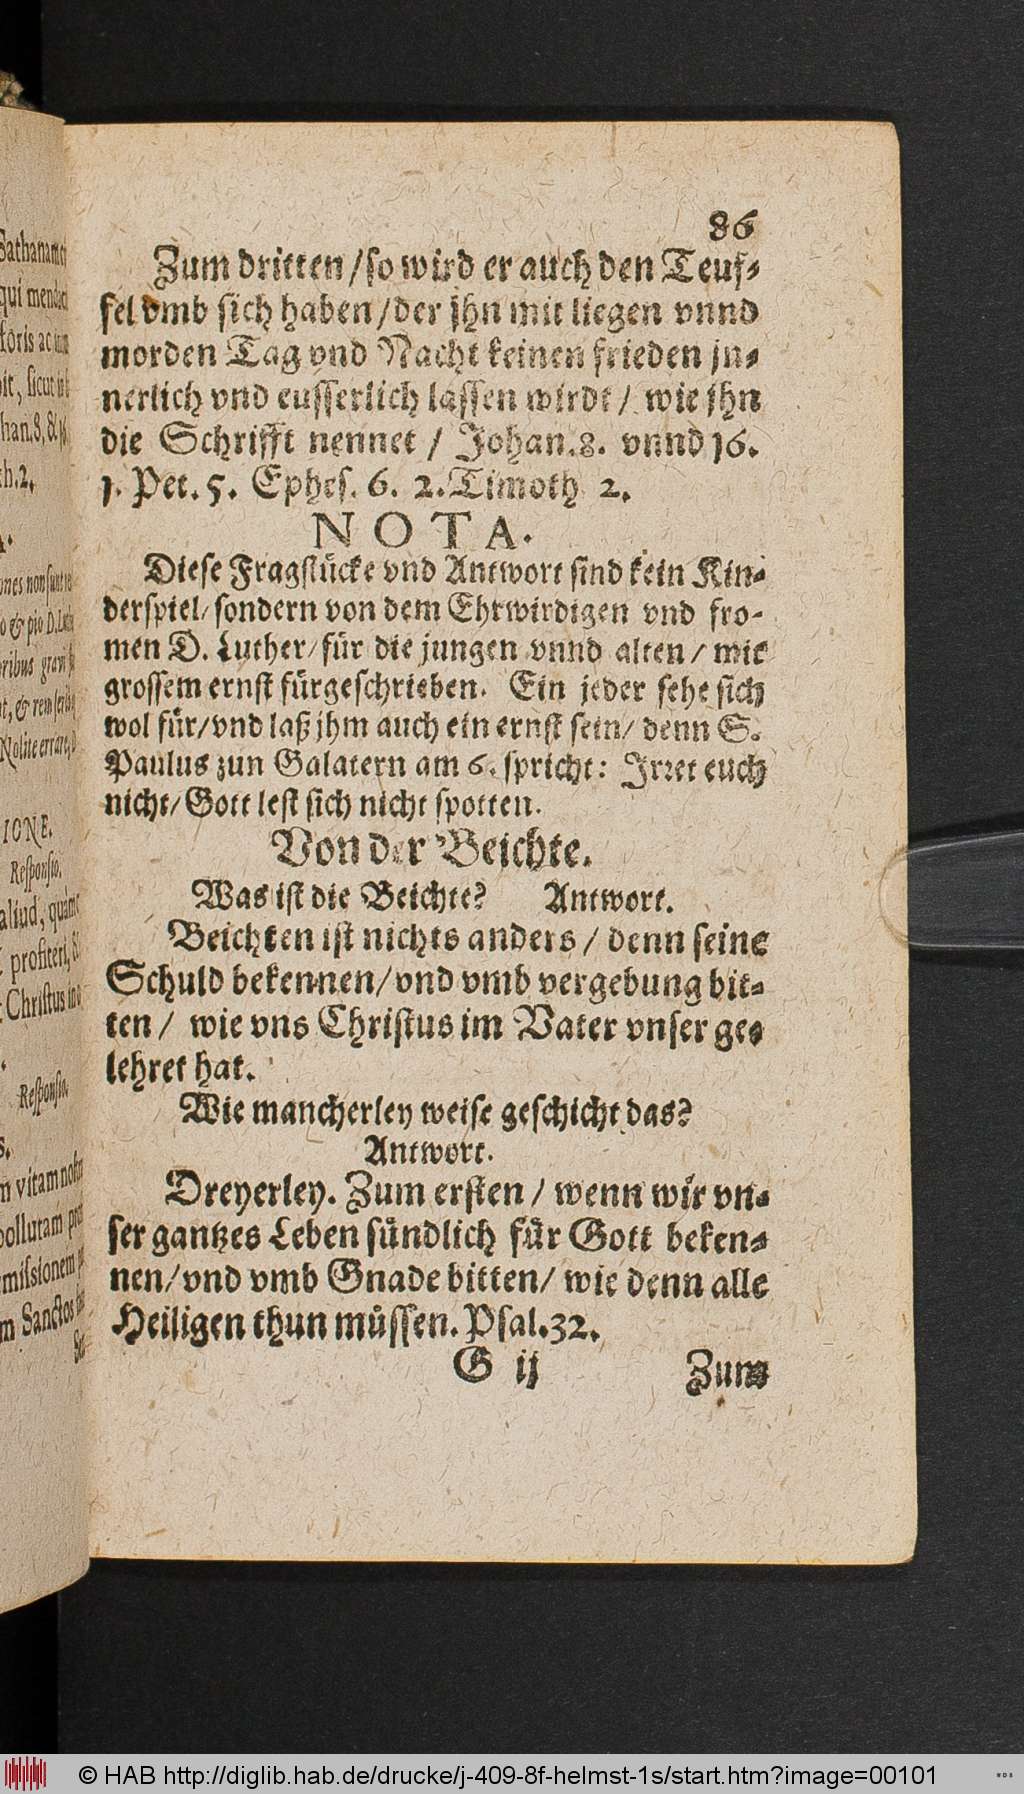 86
Zum dritten / so wird er auch den Teuf-
fel vmb sich haben / der jhn mit liegen vnnd
morden Tag vnd Nacht keinen frieden jn-
nerlich vnd eusserlich lassen wirdt / wie jhn
die Schrifft nennet / Johan. 8. vnnd 16.
1. Pet. 5. Ephes. 6. 2. Timoth 2.
NOTA.
Diese Fragstücke vnd Antwort sind kein Kin-
derspiel / sondern von dem Ehrwirdigen vnd fro-
men D. Luther / für die jungen vnnd alten / mit
grossem ernst fürgeschrieben. Ein jeder sehe sich
wol für / vnd laß jhm auch ein ernst sein / denn S.
Paulus zun Galatern am 6. spricht: Irret euch
nicht / Gott lest sich nicht spotten.
Von der Beichte.
Was ist die Beichte? Antwort.
Beichten ist nichts anders / denn seine
Schuld bekennen / vnd vmb vergebung bit-
ten / wie vns Christus im Vater vnser ge-
lehret hat.
Wie mancherley weise geschicht das?
Antwort.
Dreyerley. Zum ersten / wenn wir vn-
ser gantzes Leben sündlich für Gott beken-
nen / vnd vmb Gnade bitten / wie denn alle
Heiligen thun müssen. Psal. 32.
G ij Zum
Sathanam
qui
toris ac
sicut
han. 8, & 16
th. 2.
non sunt
& pio D.
gravi
& rem
Nolite errare,
IONE.
Responsio.
aliud, quàm
profiteri, &
Christus in
Responsio.
vitam
pollutam
missionem
Sanctos
© HAB http://diglib.hab.de/drucke/j-409-8f-helmst-1s/start.htm?image=00101